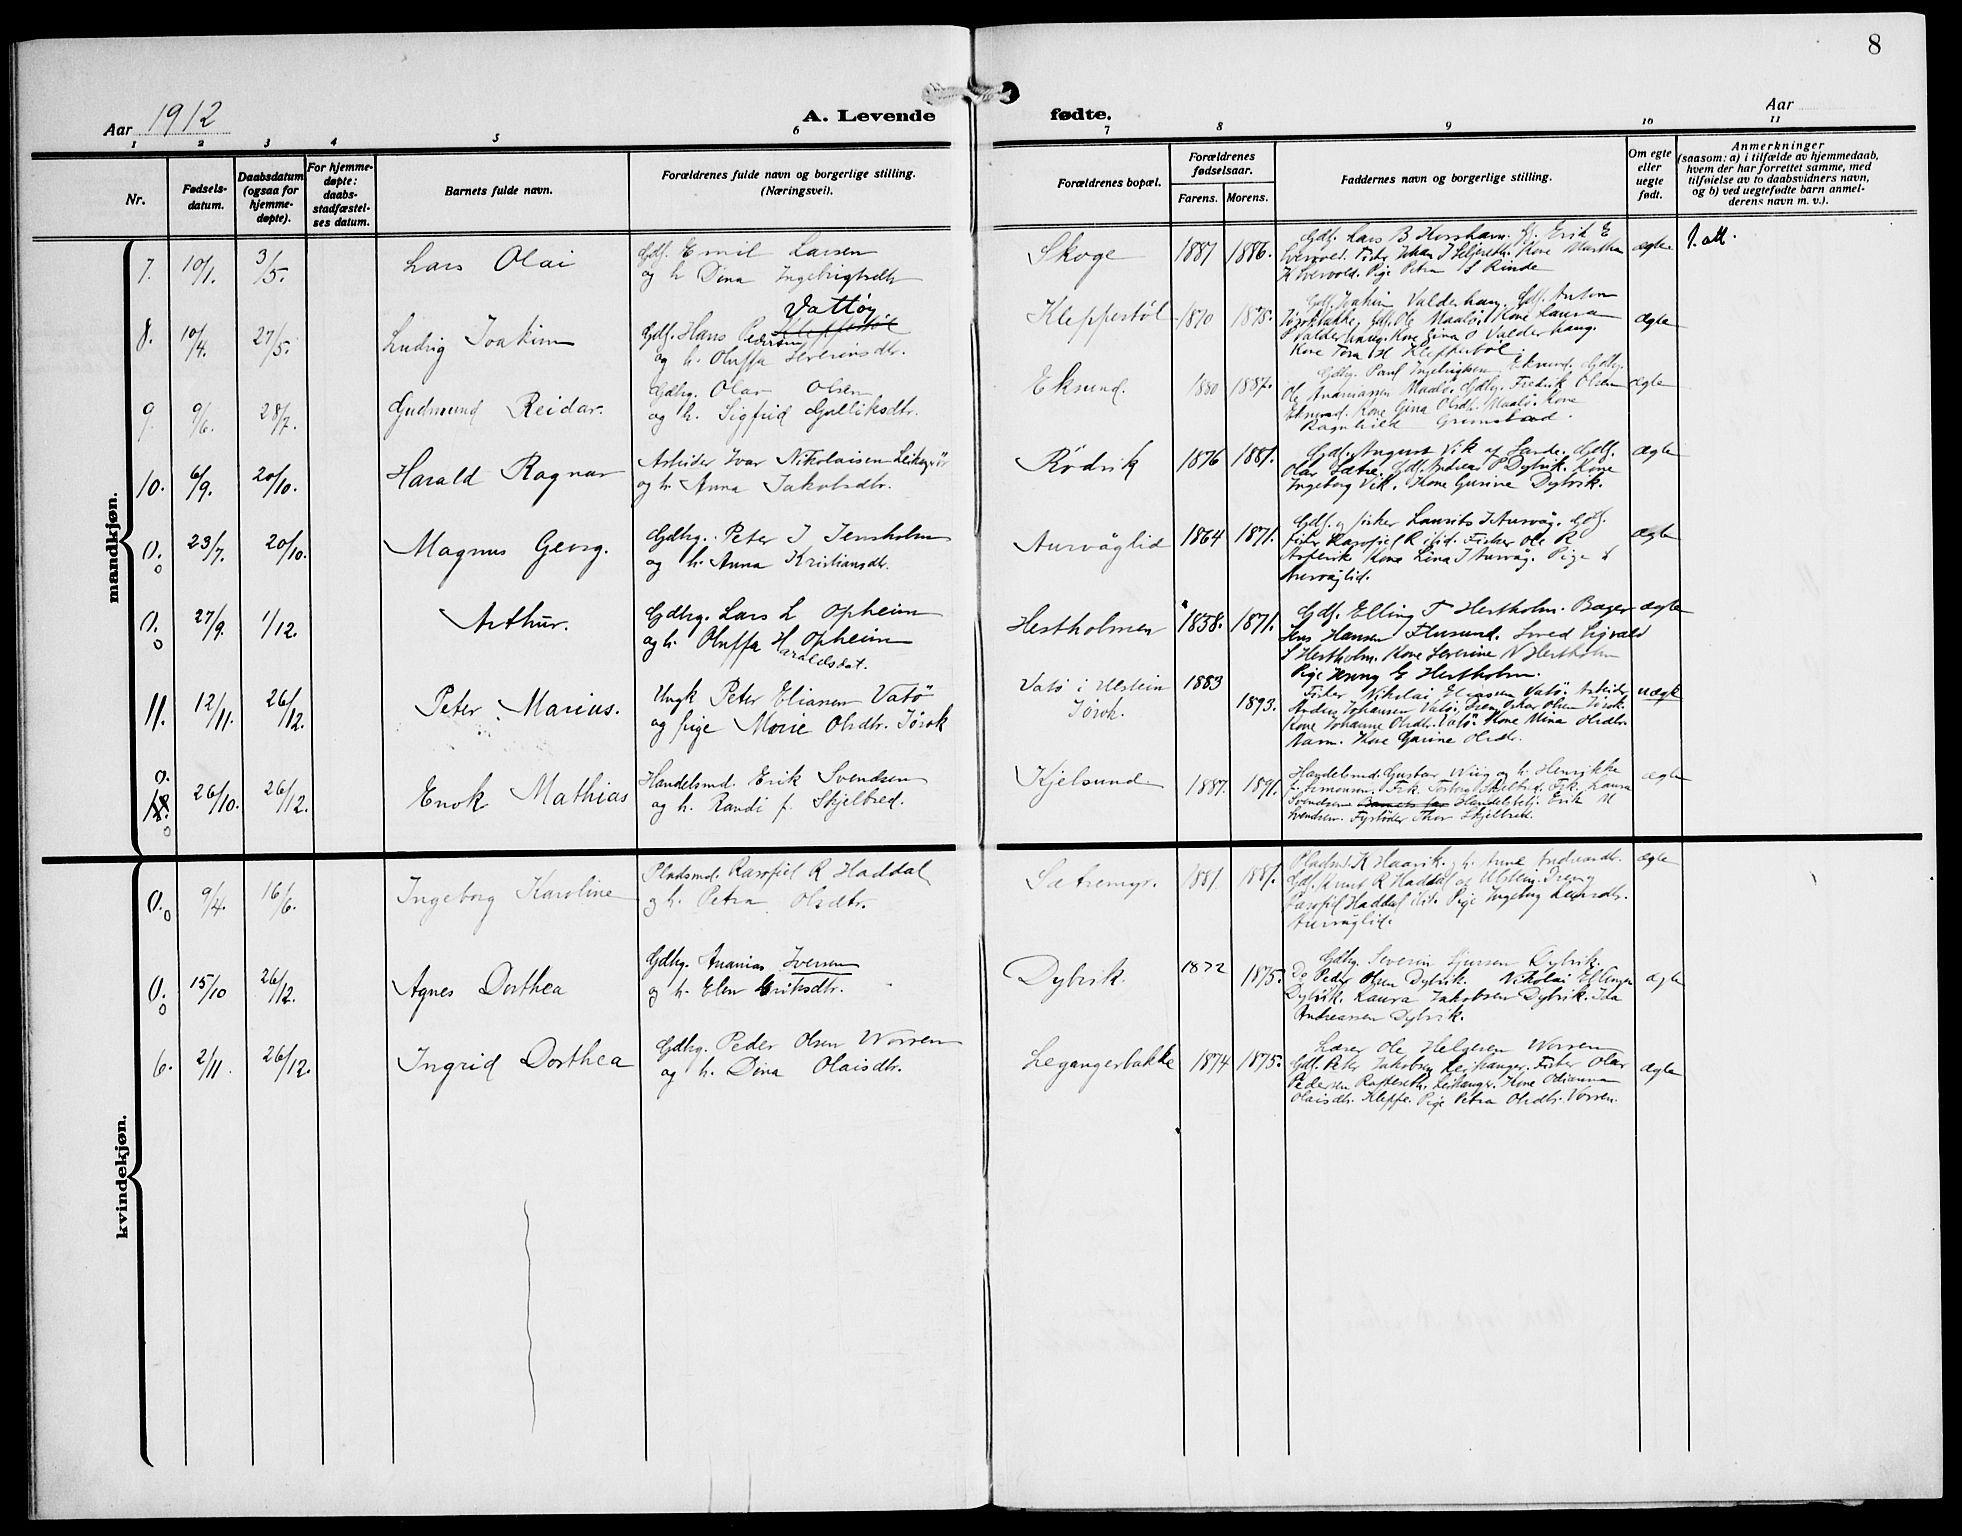 8
Aar 1912
A. Levende fødte.
Aar
1 2 3 4 5 6 7 8 9 10 11
Nr.
Fødsels-
datum.
Daabsdatum
(ogsaa for
hjemme-
døpte).
For hjemme-
døpte:
daabs-
stadfæstel-
ses datum.
Barnets fulde navn.
Forældrenes fulde navn og borgerlige stilling.
(Næringsvei).
Forældrenes bopæl.
Forældrenes
fødselsaar.
Farens. Morens.
Faddernes navn og borgerlige stilling.
Om egte
eller
uegte
født.
Anmerkninger
(saasom: a) i tilfælde av hjemmedaab,
hvem der har forrettet samme, med
tilføielse av to daabsvidners navn,
og b) ved uegtefødte barn anmel-
derens navn m. v.).
mandkjøn.
7. 10/1. 3/5. Lars Olai
Gdf. Emil Larsen
og h. Dina Ingebrigtsdtr
Skoge 1887 1886.
Gdf. Lars B. Erik E
Pige Petra S Rinde
ægte
8. 10/4. 27/5. Ludvig Joakim
Vattøy
Gdf. Hans Pedersen Kleppestøl
og h. Oluffa Severinsdtr.
Kleppestøl 1870 1875.
Gdf. Joakim Valderhaug. Gdf. Anton
Gdf. Ole Maalø. Kone Laura
P Valderhaug. Kone Gina O Valderhaug.
Kone Tora H Kleppestøl.
ægte
9. 9/6. 28/7. Gudmund Reidar.
Gdbg. Olav Olsen
og h. Sigfrid Gulliksdtr.
Eksund. 1880 1887.
Gdbg. Paul Ingebrigtsen Eksund. Gdbg.
Ole Andreassen Maalø. Gdbg. Fredrik Olsen
Eksund. Kone Gina Olsdtr. Maalø. Kone
Ragnhild Grimstad.
ægte
10. 6/9. 20/10. Harald Ragnar
Arbeider Ivar Nikolaisen
og h. Anna Jakobsdtr.
Rødvik 1876 1881.
Gdf. August Vik af Sande. Gdf.
Olav Sætre. Gdf. Andreas P Dybvik. Kone
Ingeborg Vik. Kone Gurine Dybvik.
ægte
0. 0 23/7. 20/10. Magnus Georg.
Gdbg. Peter J Jensholm
og h. Anna Kristiansdtr.
Aurvåglid 1864 1871.
Gdf. og fisker Laurits J Aurvåg. Gdf.
Fisker Ole R
Kone Lina J Aurvåg. Pige
Aurvåglid.
ægte
0. 0 27/9. 1/12. Arthur.
Gdbg. Lars L Opheim
og h. Oluffa H Opheim
Haraldsdat.
Hestholmen 1858. 1871.
Gdf. Elling T Hestholm. Bager
Jens Hansen Flusund. Smed Sigvald
S Hestholm. Kone Severine N Hestholm
Pige Jenny E Hestholm.
ægte
11. 12/11. 26/12. Peter Marius.
Ungk Peter Eliassen Vatö
og pige Marie Olsdtr. Jørok
Vatö i Ulstein
Jørok.
1883 1893.
Fisker Nikolai Eliassen Vatö. Arbeider
Anders Johansen Vatö. Oskar Olsen Jørok.
Kone Johanne Olsdtr. Vatö. Kone Mina Olsdtr.
Kone Olsdtr.
uægte
0. 0 26/10. 26/12. Enok Mathias
Handelsmd. Erik Svendsen
og h. Randi f. Skjelbred.
Kjelsund 1887. 1891.
Handelsmd. Gustav Wiig og h. Henrikke
f. Simonsen. Frk. Torborg Skjelbred. Frk. Laura
Svendsen Barnets far Handelsbetj. Erik M
Svendsen. Thor Skjelbred.
ægte
kvindekjøn.
0. 0 9/4. 16/6. Ingeborg Karoline
Pladsmd. Rasofiel R Haddal
og h. Petra Olsdtr.
Sætremyr. 1881. 1881.
Pladsmd. K Haavik og h. Anne
Gdf. Knut R Haddal og Ulstein. Dreng
Rasofiel Haddal Pige Ingeborg
Aurvåglid.
ægte
0. 0 15/10 26/12. Agnes Dorthea
Gdbg. Ananias Iversen
og h. Elen Eriksdtr.
Dybvik. 1872 1875.
Gdbg. Severin Dybvik.
Do Peder Olsen Dybvik. Nikolai
Dybvik. Laura Jakobsen Dybvik. Ida
Andreassen Dybvik.
ægte
6. 2/11. 26/12. Ingrid Dorthea
Gdbg. Peder Olsen Worren
og h. Dina Olaisdtr.
Legangerbakke 1874 1875.
Lærer Ole Helgesen Worren
Gdf. Peter Jakobsen Leikanger. Fisker Olav
Pedersen Leikanger. Kone Olianna
Olaisdtr. Kleppe. Pige Petra Olsdtr. Vorren.
ægte